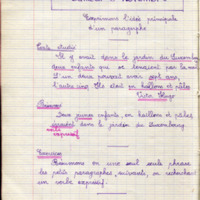 Exprimons l'idée principale
d'un paragraphe
Texte étudié
Il y avait dans le jardin du Luxembourg
deux enfants qui se tenaient par la main
L'un deux pouvait avoir sept ans,
l'autre cinq. Ils étaient en haillons et pâles
Victor Hugo
Résumons
Deux jeunes enfants, en haillons et pâles
dans le jardin du Luxembourg
verbe
expressif
Exercices
Résumons en une seule phrase
les petits paragraphes suivants, en recherchant
un verbe expressif.